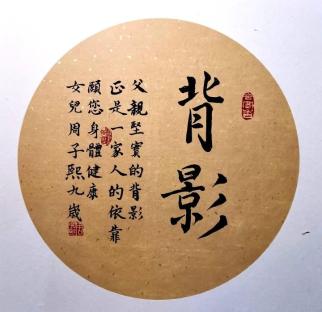 背影
父親堅實的背影
正是一家人的依靠
願您身體健康
女兒周子熙九歲